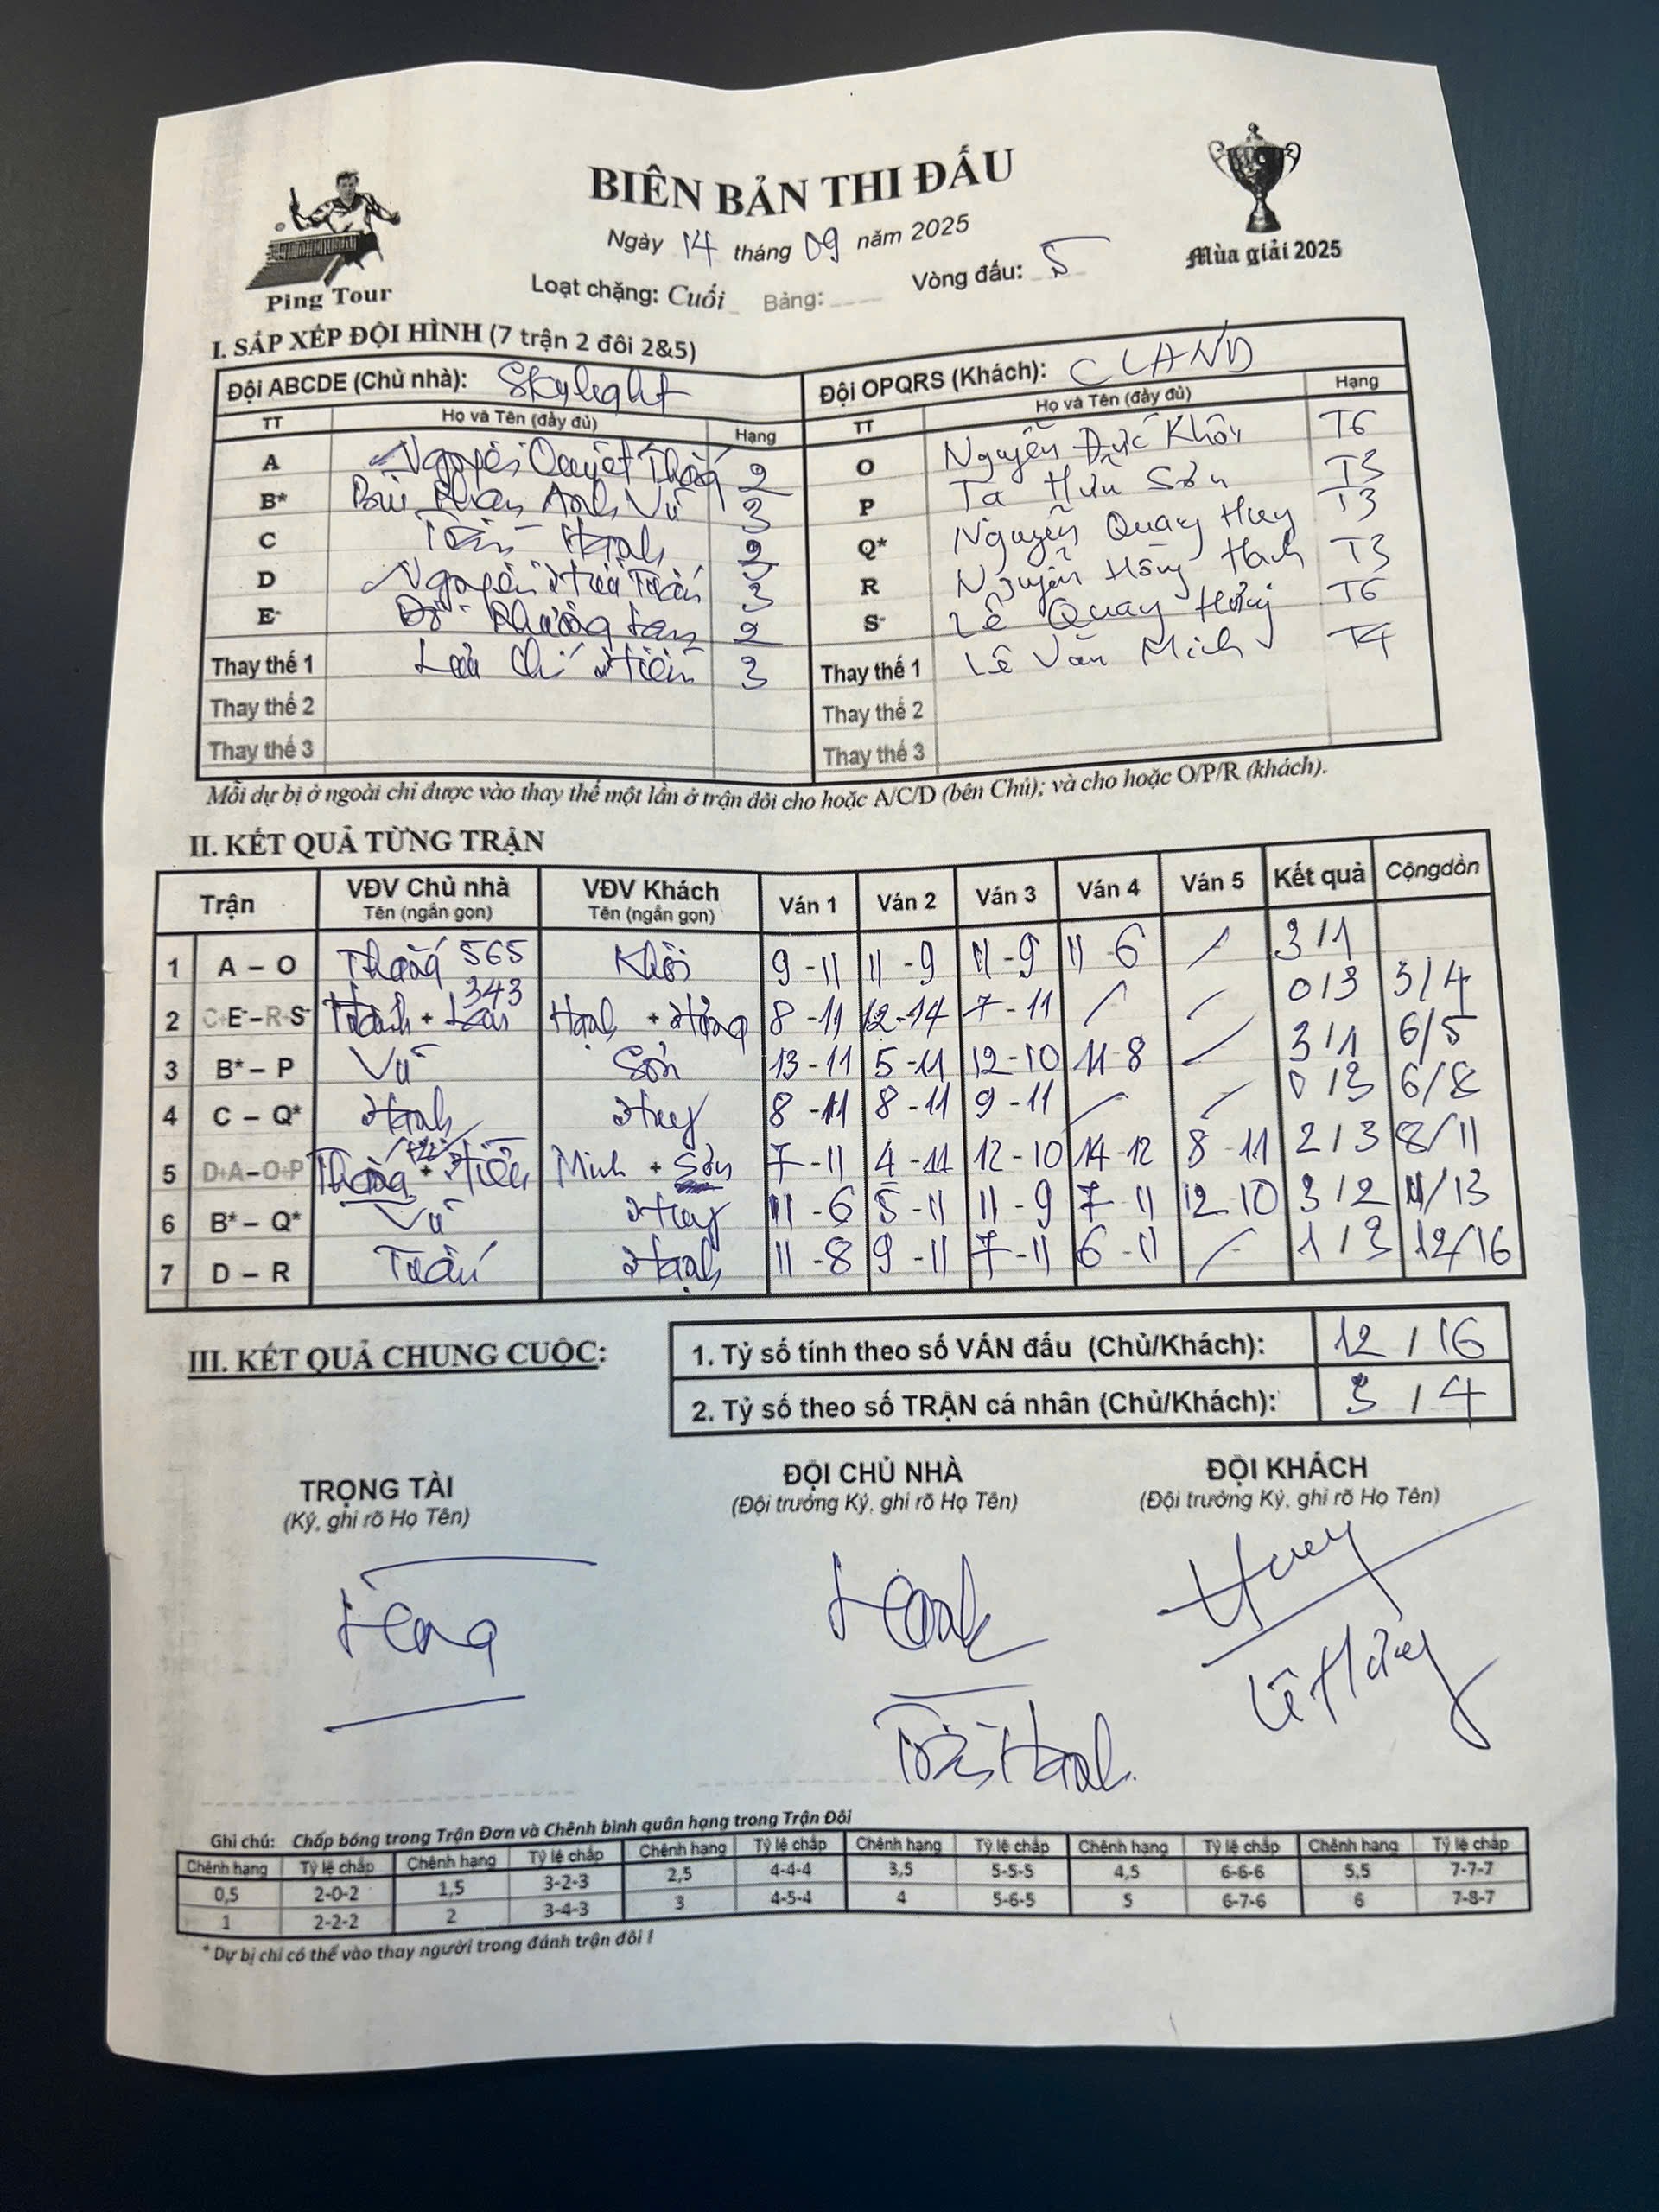 BIÊN BẢN THI ĐẤU
Ngày 14 tháng 09 năm 2025
Loạt chặng: Cuối Bảng: Vòng đấu: 5
Ping Tour
Mùa giải 2025
I. SẮP XẾP ĐỘI HÌNH (7 trận 2 đôi 2&5)
Đội ABCDE (Chủ nhà): Skylight Đội OPQRS (Khách): CLAND
TT Họ và Tên (đầy đủ) Hạng TT Họ và Tên (đầy đủ) Hạng
A Nguyễn Quyết Thắng 2 O Nguyễn Đức Khôi T6
B* Bùi Phan Anh Vũ 3 P Tạ Hữu Sơn T3
C Trần Hạnh 2 Q* Nguyễn Quang Huy T3
D Nguyễn Tuấn 3 R Nguyễn Hồng Hạnh T3
E- Phương Lan 2 S- Lê Quang Hưng T6
Thay thế 1 Lưu Chí Hiếu 3 Thay thế 1 Lê Văn Minh T4
Thay thế 2 Thay thế 2
Thay thế 3 Thay thế 3
Mỗi dự bị ở ngoài chỉ được vào thay thế một lần ở trận đôi cho hoặc A/C/D (bên Chủ); và cho hoặc O/P/R (khách).
II. KẾT QUẢ TỪNG TRẬN
Trận VĐV Chủ nhà VĐV Khách Ván 1 Ván 2 Ván 3 Ván 4 Ván 5 Kết quả Cộngdồn
Tên (ngắn gọn) Tên (ngắn gọn)
1 A – O Thắng 565 Khôi 9 - 11 11 - 9 11 - 9 11 - 6 / 3 / 1
2 C+E- – R+S- + Lan 343 Hạnh + Hưng 8 - 11 12 - 14 7 - 11 / / 0 / 3 3 / 4
3 B* – P Vũ Sơn 13 - 11 5 - 11 12 - 10 11 - 8 / 3 / 1 6 / 5
4 C – Q* Hạnh Huy 8 - 11 8 - 11 9 - 11 / / 0 / 3 6 / 8
5 D+A – O+P Thắng + Hiếu Minh + Sơn 7 - 11 4 - 11 12 - 10 14 - 12 8 - 11 2 / 3 8 / 11
6 B* – Q* Vũ Huy 11 - 6 5 - 11 11 - 9 7 - 11 12 - 10 3 / 2 11 / 13
7 D – R Tuấn Hạnh 11 - 8 9 - 11 7 - 11 6 - 11 / 1 / 3 12 / 16
III. KẾT QUẢ CHUNG CUỘC:
1. Tỷ số tính theo số VÁN đấu (Chủ/Khách): 12 / 16
2. Tỷ số theo số TRẬN cá nhân (Chủ/Khách): 3 / 4
TRỌNG TÀI ĐỘI CHỦ NHÀ ĐỘI KHÁCH
(Ký, ghi rõ Họ Tên) (Đội trưởng Ký, ghi rõ Họ Tên) (Đội trưởng Ký, ghi rõ Họ Tên)
Hạnh Huy
Trần Hạnh Lê Hưng
Ghi chú: Chấp bóng trong Trận Đơn và Chênh bình quân hạng trong Trận Đôi
Chênh hạng Tỷ lệ chấp Chênh hạng Tỷ lệ chấp Chênh hạng Tỷ lệ chấp Chênh hạng Tỷ lệ chấp Chênh hạng Tỷ lệ chấp Chênh hạng Tỷ lệ chấp
0,5 2-0-2 1,5 3-2-3 2,5 4-4-4 3,5 5-5-5 4,5 6-6-6 5,5 7-7-7
1 2-2-2 2 3-4-3 3 4-5-4 4 5-6-5 5 6-7-6 6 7-8-7
* Dự bị chỉ có thể vào thay người trong đánh trận đôi !